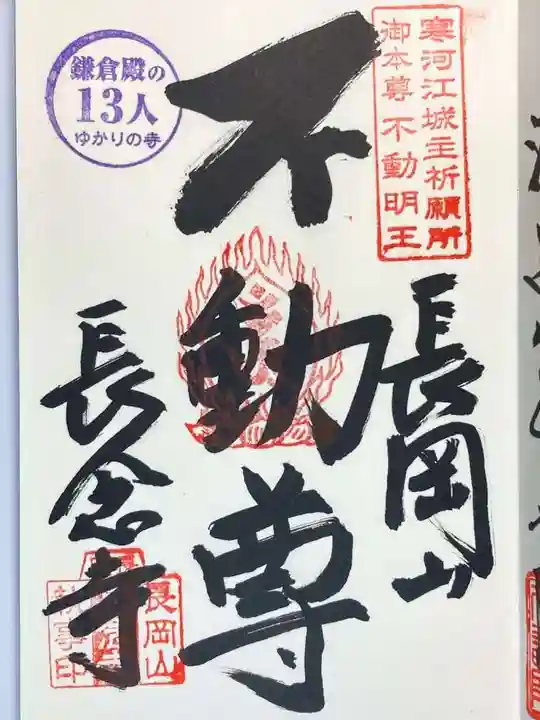 寒河江城主祈願所
御本尊 不動明王
長岡山
不動尊
鎌倉殿の
13人
ゆかりの寺
長念寺
長岡山